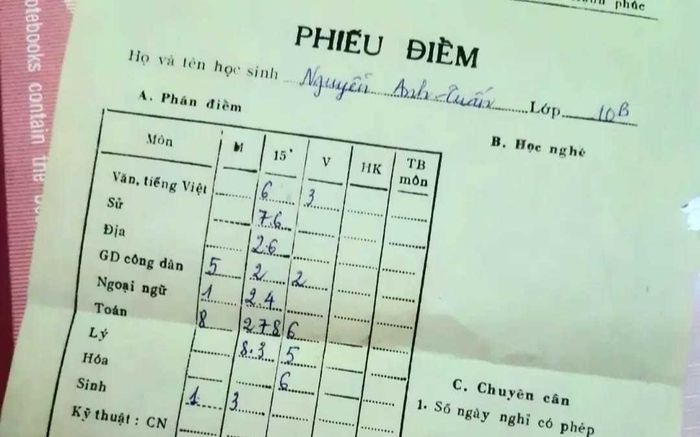 phúc
PHIẾU ĐIỂM
Họ và tên học sinh Nguyễn Anh-Tuấn Lớp 10B
A. Phần điểm
B. Học nghề
Môn M 15' V HK TB môn
Văn, tiếng Việt 6 3
Sử 76
Địa 26
GD công dân 5 2 2
Ngoại ngữ 1 24
Toán 8 278 6
Lý 8.3 5
Hóa 6
Sinh 1 3
Kỹ thuật : CN
C. Chuyên cần
1. Số ngày nghỉ có phép
notebooks contain the